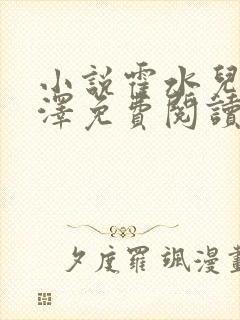 小説霍水兒
澤免費閱讀
夕度羅颯漫畫